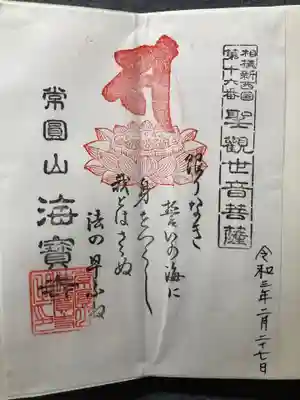 相模新西國
第十六番
聖觀世音菩薩
令和三年二月二十七日
限りなき
誓いの海に
身をつくし
我とはさらぬ
法の早ふね
常圓山 海寶寺